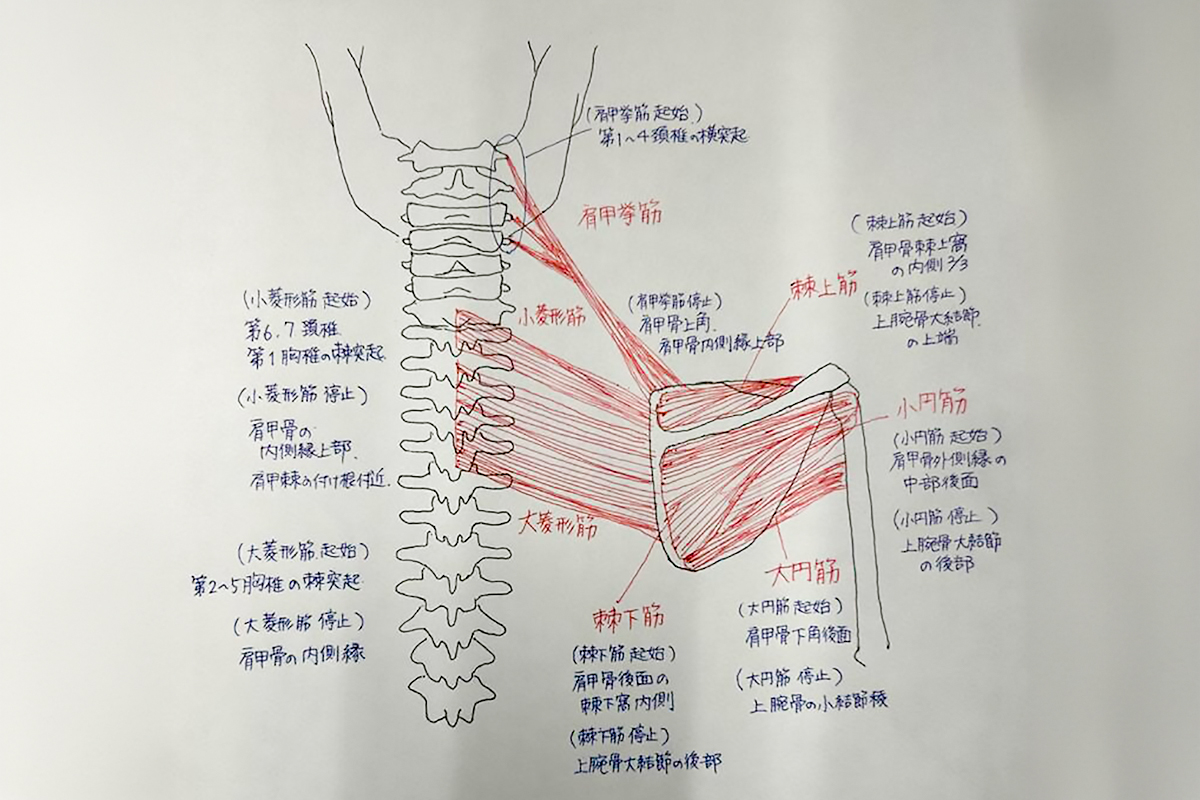 (肩甲挙筋 起始)
第1~4頚椎の横突起
肩甲挙筋
(棘上筋 起始)
肩甲骨棘上窩
の内側 2/3
(棘上筋停止)
上腕骨大結節
の上端
棘上筋
(肩甲挙筋停止)
肩甲骨上角.
肩甲骨内側縁上部
(小菱形筋 起始)
第6.7 頚椎
第1胸椎の棘突起
(小菱形筋 停止)
肩甲骨の
内側縁上部.
肩甲棘の付け根付近.
小菱形筋
小円筋
(小円筋 起始)
肩甲骨外側縁の
中部後面
(小円筋 停止)
上腕骨大結節
の後部
大菱形筋
(大菱形筋 起始)
第2~5胸椎の棘突起
(大菱形筋 停止)
肩甲骨の内側縁
棘下筋
(棘下筋 起始)
肩甲骨後面の
棘下窩内側
(棘下筋停止)
上腕骨大結節の後部
大円筋
(大円筋 起始)
肩甲骨下角後面
(大円筋 停止)
上腕骨の小結節稜